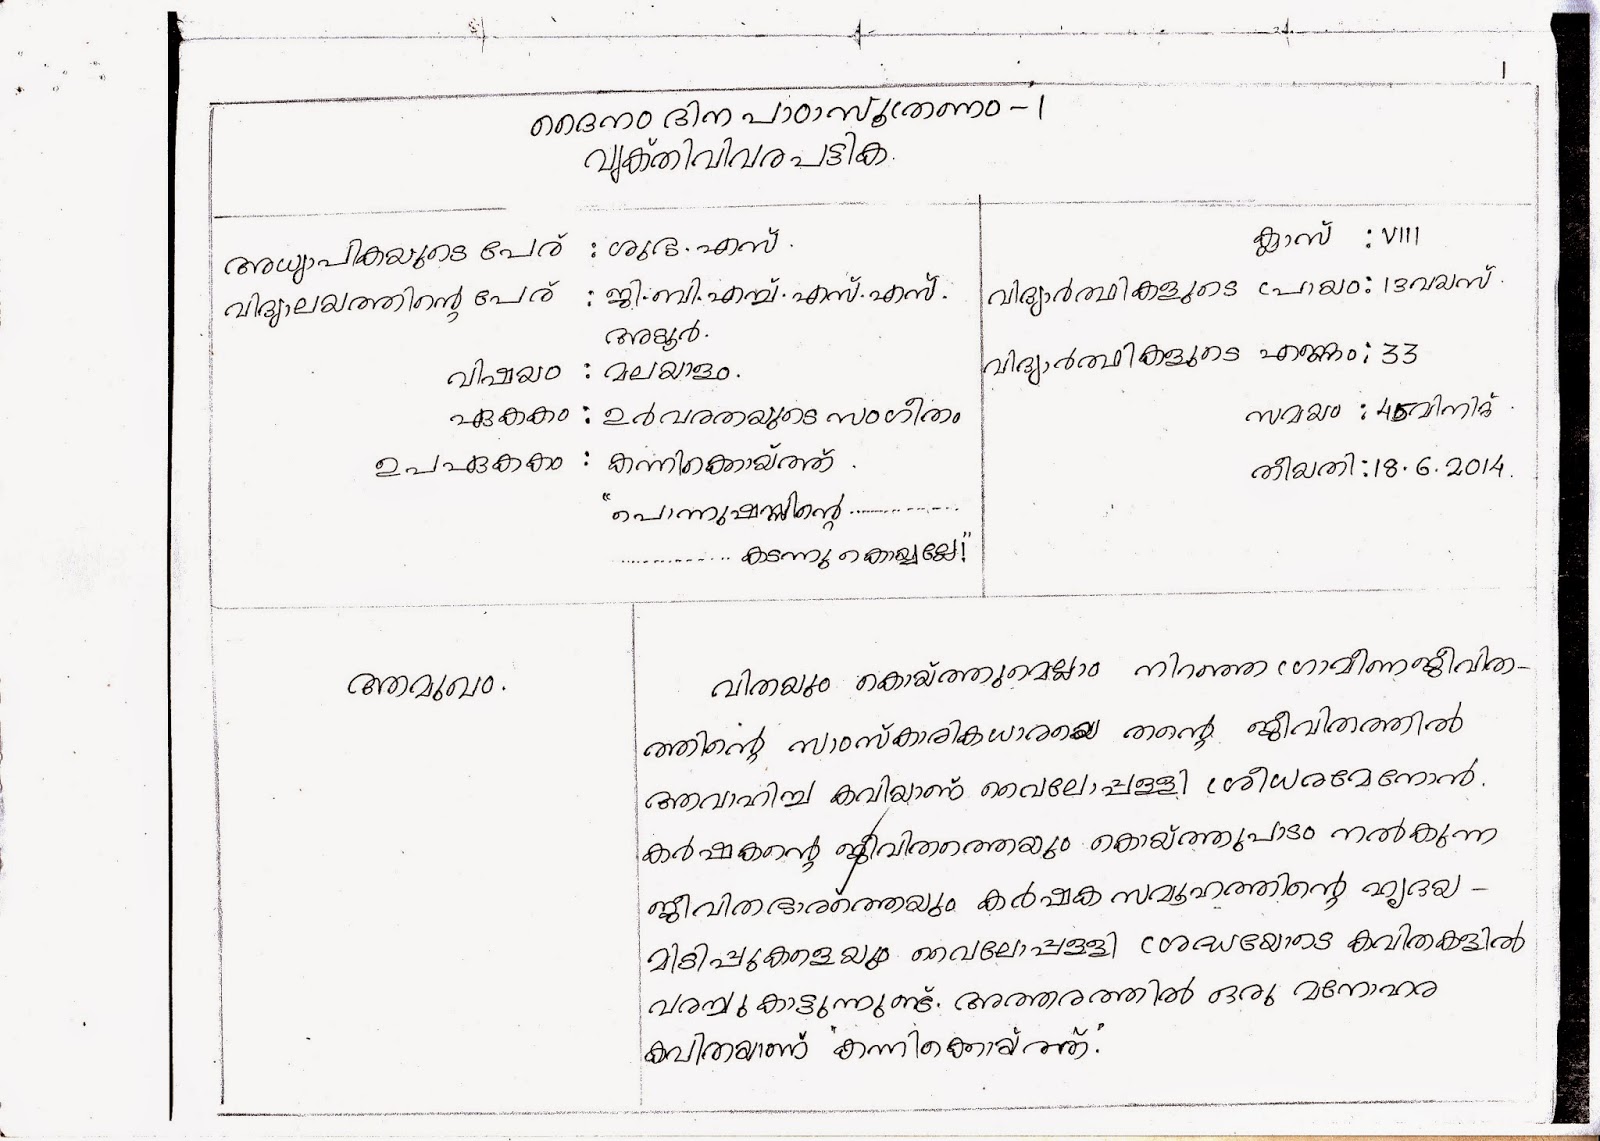 1
ദൈനംദിന പാഠാസൂത്രണം - 1
വ്യക്തിവിവരപട്ടിക.
അധ്യാപികയുടെ പേര് : ശുഭ. എസ്.
വിദ്യാലയത്തിന്റെ പേര് : ജി. ബി. എച്ച്. എസ്. എസ്.
അടൂർ.
വിഷയം : മലയാളം.
ഏകകം : ഉർവരതയുടെ സംഗീതം
ഉപഏകകം : കന്നിക്കൊയ്ത്ത്.
"പൊന്നുഷസ്സിന്റെ ..............
.............. കടന്നു കൊയ്യല്ലേ!"
ക്ലാസ് : VIII
വിദ്യാർത്ഥികളുടെ പ്രായം : 13 വയസ്.
വിദ്യാർത്ഥികളുടെ എണ്ണം : 33
സമയം : 45 മിനിട്ട്.
തീയതി : 18.6.2014.
ആമുഖം.
വിതയും കൊയ്ത്തുമെല്ലാം നിറഞ്ഞ ഗ്രാമീണജീവിത-
ത്തിന്റെ സാംസ്കാരികധാരയെ തന്റെ ജീവിതത്തിൽ
ആവാഹിച്ച കവിയാണ് വൈലോപ്പള്ളി ശ്രീധരമേനോൻ.
കർഷകന്റെ ജീവിതത്തെയും കൊയ്ത്തുപാടം നൽകുന്ന
ജീവിതഭാരത്തെയും കർഷക സമൂഹത്തിന്റെ ഹൃദയ -
മിടിപ്പുകളെയും വൈലോപ്പള്ളി ശ്രദ്ധയോടെ കവിതകളിൽ
വരച്ചു കാട്ടുന്നുണ്ട്. അത്തരത്തിൽ ഒരു മനോഹര
കവിതയാണ് 'കന്നിക്കൊയ്ത്ത്.'